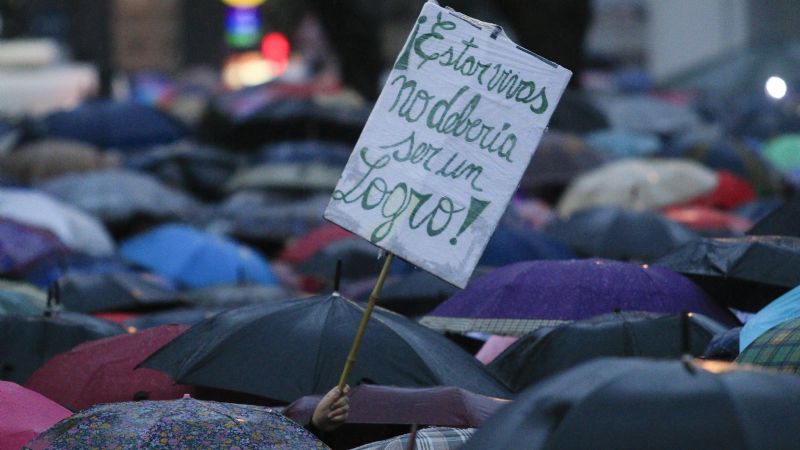 ¡Estar vivas
No debería
ser un
Logro!